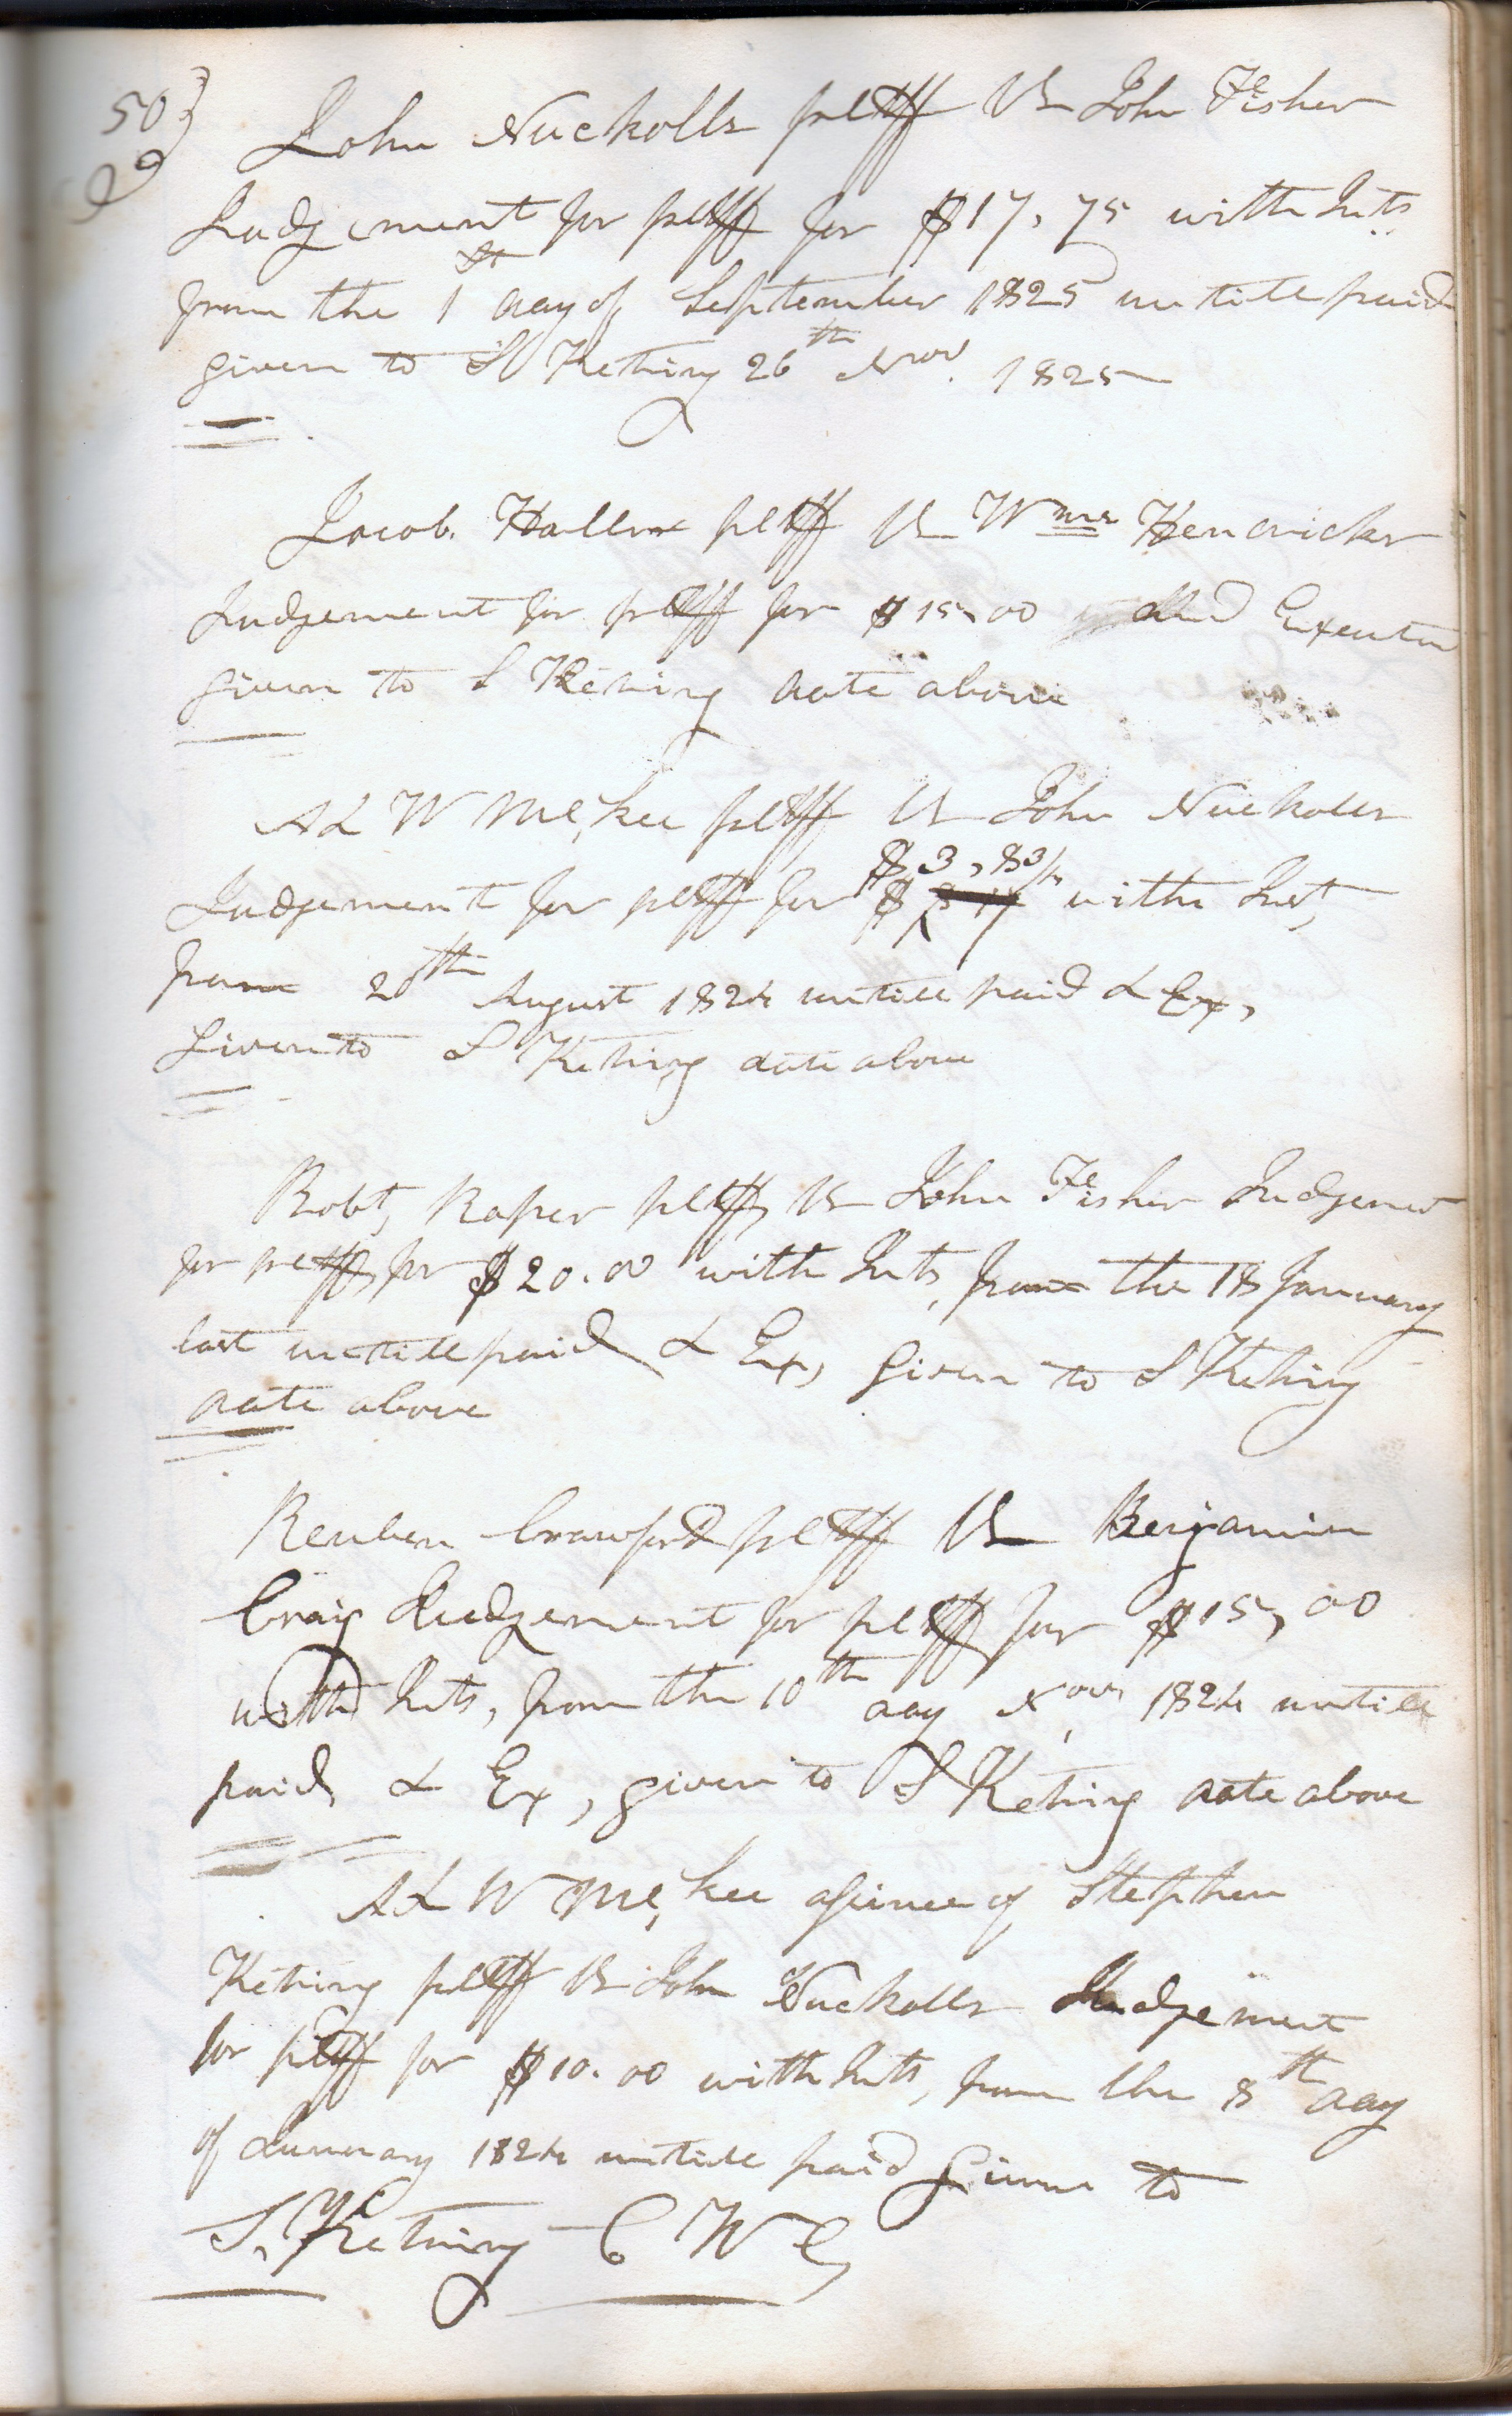 50}
John Nuckolls pltff Vs John Fisher
Judgement for pltff for $17,75 with Ints
from the 1st day of September 1825 untill paid
given to S Kething 26th Novr. 1825
Jacob. Haller pltff Vs Wm Hendricks
Judgement for pltff for $15,00 and Execution
given to S Kething date above
Al W Mc,kee pltff Vs John Nuckolls
$3,83½
Judgement for pltff for $ with Int,
from 20th August 1824 untill paid & Ex,
Given to S Kething date above
Robt, Raper pltff, Vs John Fisher Judgement
for pltff, for $20.00 with Ints, from the 18 January
last untill paid & Ex, Given to S Kething
date above
Reuben Crawford pltff Vs Benjamin
Craig Judgement for pltff for $15,00
with Ints, from the 10th day Novr 1824 untill
paid & Ex, given to S Kething date above
Al W Mc,kee asinee of Stephen
Kething pltff Vs John Nuckolls Judgement
for pltff for $10.00 with Ints, from the 8th day
of January 1824 untill paid Given to
S. Kething C W C